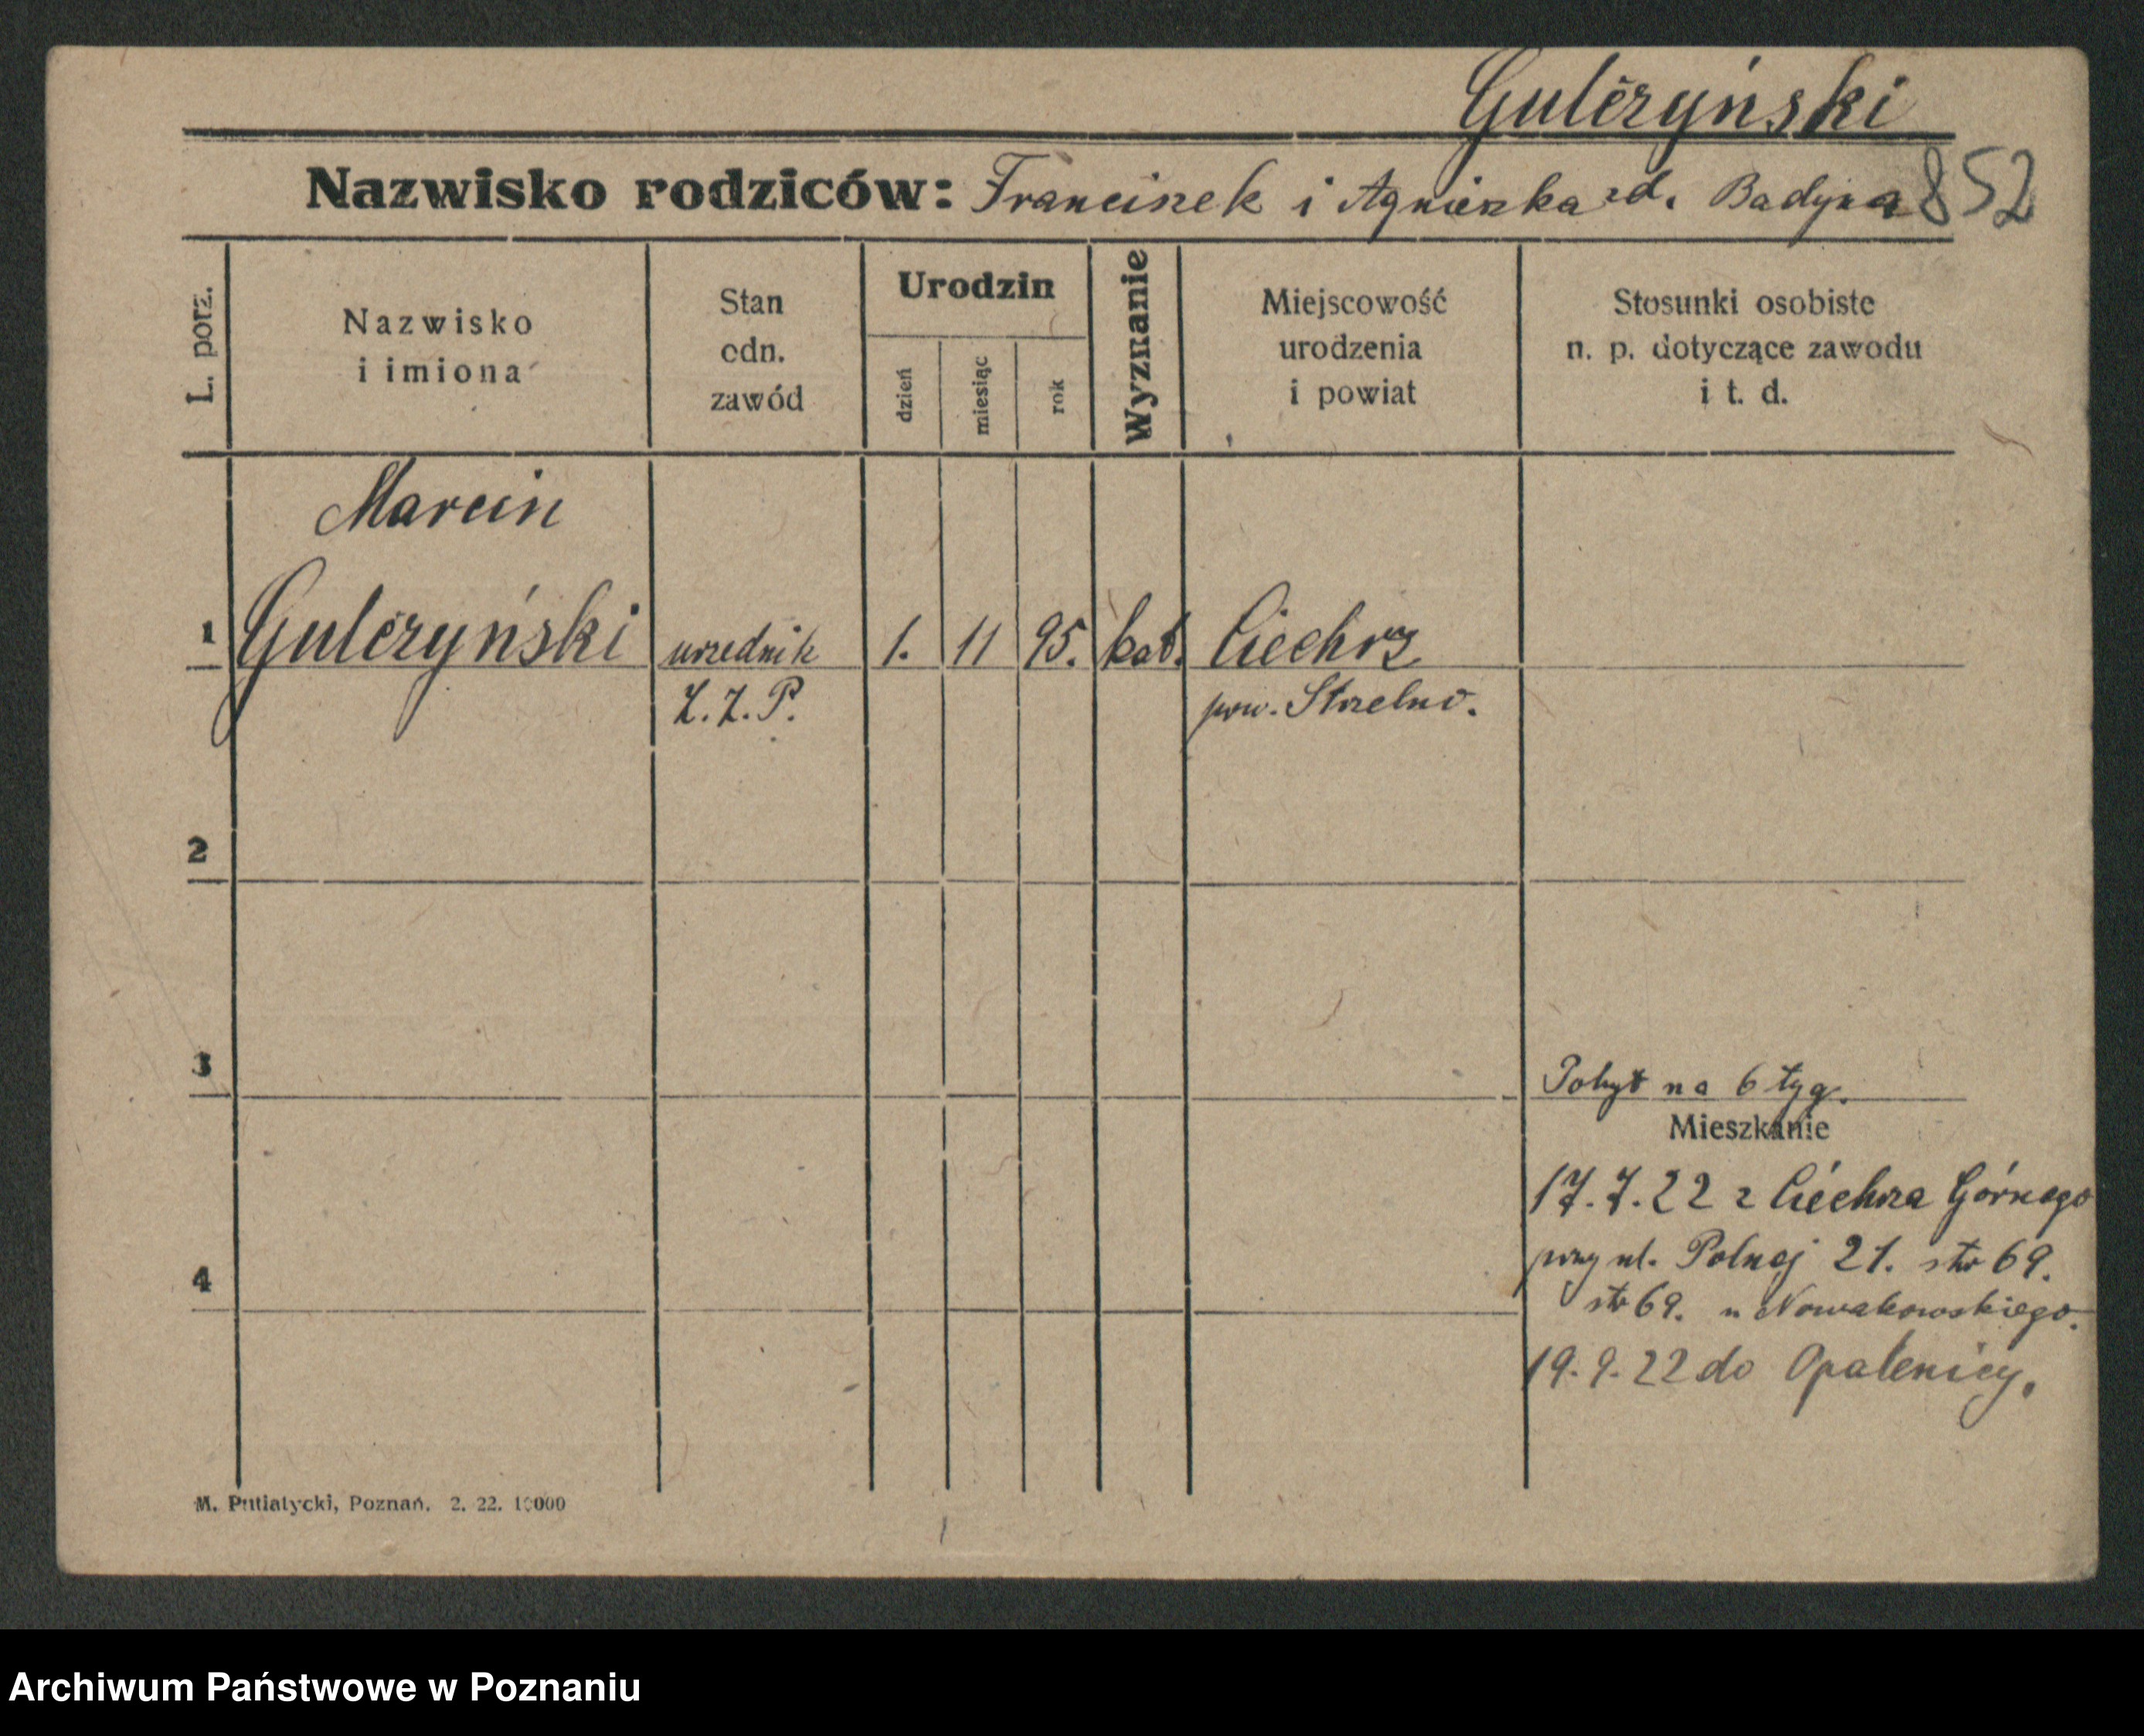 Gulczyński
Nazwisko rodziców: Franciszek i Agnieszka zd. Badyna 852
L. porz.
Nazwisko
i imiona
Stan
odn.
zawód
Urodzin
dzień
miesiąc
rok
Wyznanie
Miejscowość
urodzenia
i powiat
Stosunki osobiste
n. p. dotyczące zawodu
i t. d.
Marcin
1 Gulczyński urzednik 1. 11 95. kat. Ciechrz
Z. Z. P. pow. Strzelno.
2
3
Pobyt na 6 tyg.
Mieszkanie
17. 7. 22 z Ciechrza Górnego
przy ul. Polnej 21. str 69.
4
str 69. u Nowakowskiego.
19. 9. 22 do Opalenicy.
M. Putiatycki, Poznań. 2. 22. 10000
Archiwum Państwowe w Poznaniu